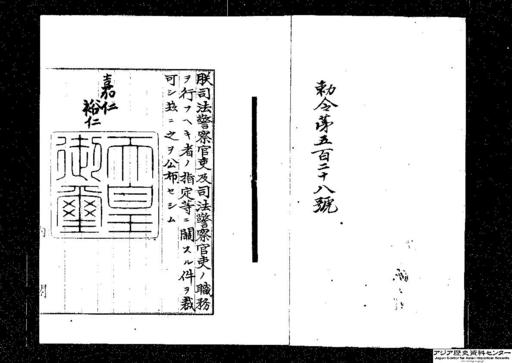 勅令第五百二十八號
朕司法警察官吏及司法警察官吏ノ職務
ヲ行フヘキ者ノ指定等ニ關スル件ヲ裁
可シ茲ニ之ヲ公布セシム
嘉仁
裕仁
天皇
御璽
アジア歴史資料センター
Japan Center for Asian Historical Records